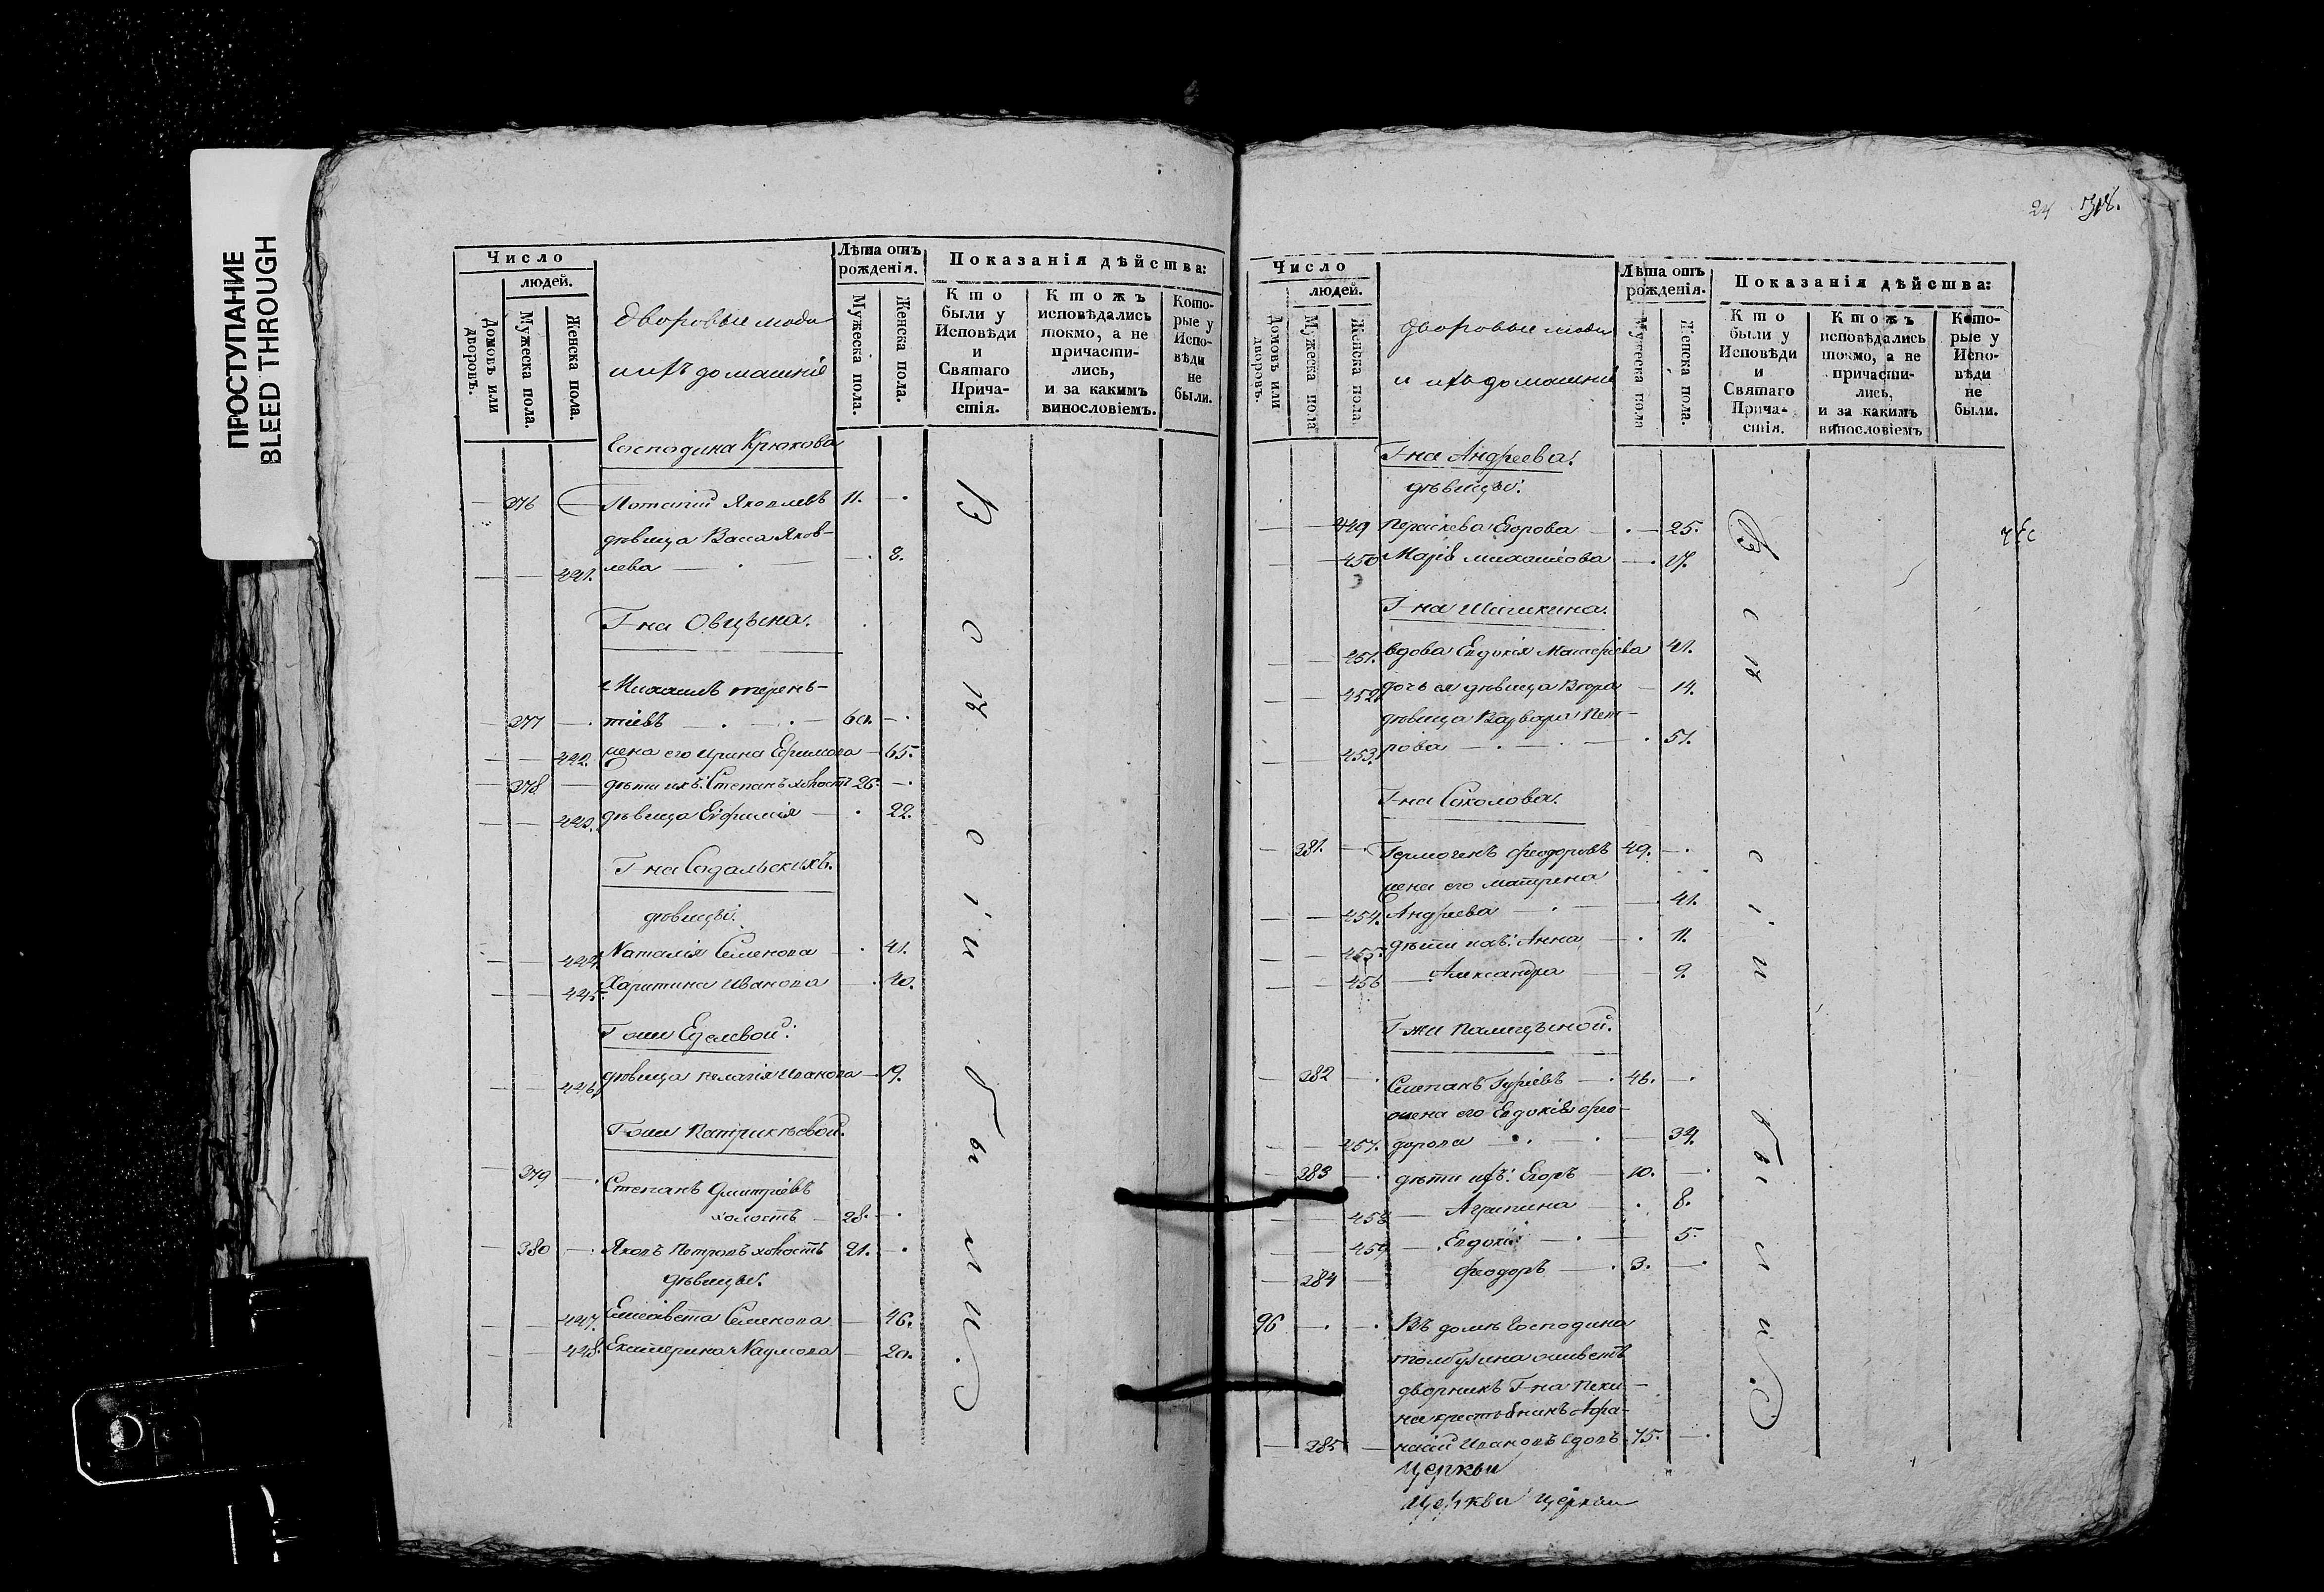 ПРОСТУПАНИЕ
BLEED THROUGH
Число
людей.
Домовъ или дворовъ.
Мужеска пола.
Женска пола.
Дворовые люди
и ихъ домашніе
Лѣта отъ рожденія.
Мужеска пола.
Женска пола.
Показанія дѣйства:
Кто были у Исповѣди и Святаго Прича-стія.
Ктожъ исповѣдались токмо, а не причасти-лись, и за какимъ винословіемъ.
Кото-рые у Испо-вѣди не были.
Господина Крюкова
376 Потапій Яковлевъ 11.
дѣвица Васса Яков-
441. лева 8.
Г-на Овцына.
Михаилъ терен-
377 тіевъ 60.
442. жена его Ирина Ефимова 65.
378 дѣти ихъ: Степанъ холостъ 26.
443. дѣвица Евфимія 22.
Г-на
дѣвицы:
444. Наталія Семенова 41.
445. Харитина Иванова 40.
Г-жи
446. дѣвица Пелагія Иванова 19.
Г-жи Патрикѣевой.
379 Степанъ Дмитріевъ
холостъ 28.
380 Яковъ Петровъ холостъ 21.
дѣвицы:
447. Елисавета Семенова 46.
448. Екатерина Наумова 20.
Всѣ
были.
24
Число
людей.
Домовъ или дворовъ.
Мужеска пола
Женска пола.
дворовые люди
и ихъ домашніе
Лѣта отъ рожденія.
Мужеска пола
Женска пола.
Показанія дѣйства:
Кто были у Исповѣди и Святаго Прича-стія.
Ктожъ исповѣдались токмо, а не причасти-лись, и за какимъ винословіемъ
Кото-рые у Испо-вѣди не были.
Г-на Андреева.
дѣвицы:
449 Параскева Егорова 25.
450 Марія михаилова 27.
Г-на Шишкина.
451. вдова Евдокія 41.
452. дочь ея дѣвица 14.
дѣвица Варвара Пет-
453. рова 51.
Г-на Соколова.
381. Гермогенъ Феодоровъ 49.
жена его матрена
454. Андреева 41.
455. дѣти ихъ: Анна 11.
456 Александра 9.
Г-жи Палицыной.
382 Степанъ Гуріевъ 46.
жена его Евдокія Фео-
457. дорова 34.
383 дѣти ихъ: Егоръ 10.
458 Агрипина 8.
459 Евдокія 5.
384 Феодоръ 3.
96 Въ домѣ Господина
толбузина живетъ
дворникъ Г-на
крестьянинъ Афа-
385 насій Ивановъ вдовъ 75.
Всѣ
были.
Церкви
Церкви Церкви